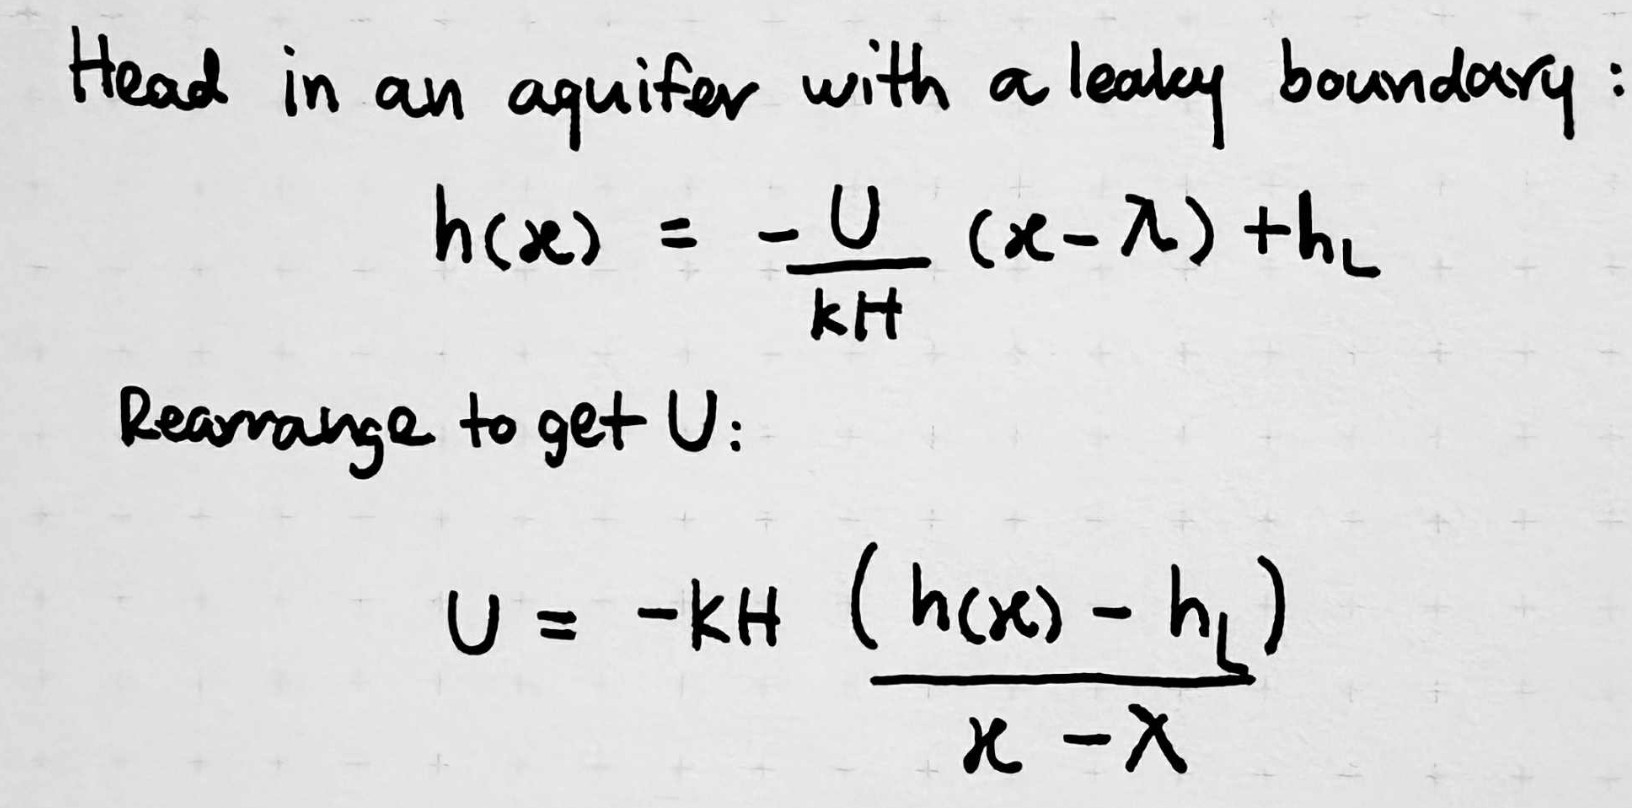 Head in an aquifer with a leaky boundary:
h(x) = -U/kH (x-λ) + h_L
Rearrange to get U:
U = -kH (h(x) - h_L)/x - λ